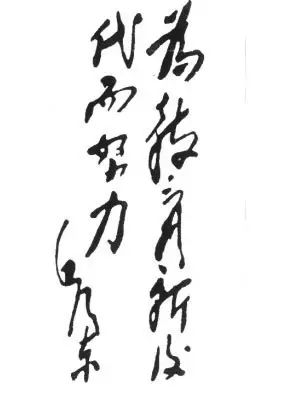 为教育新后
代而努力
毛泽东